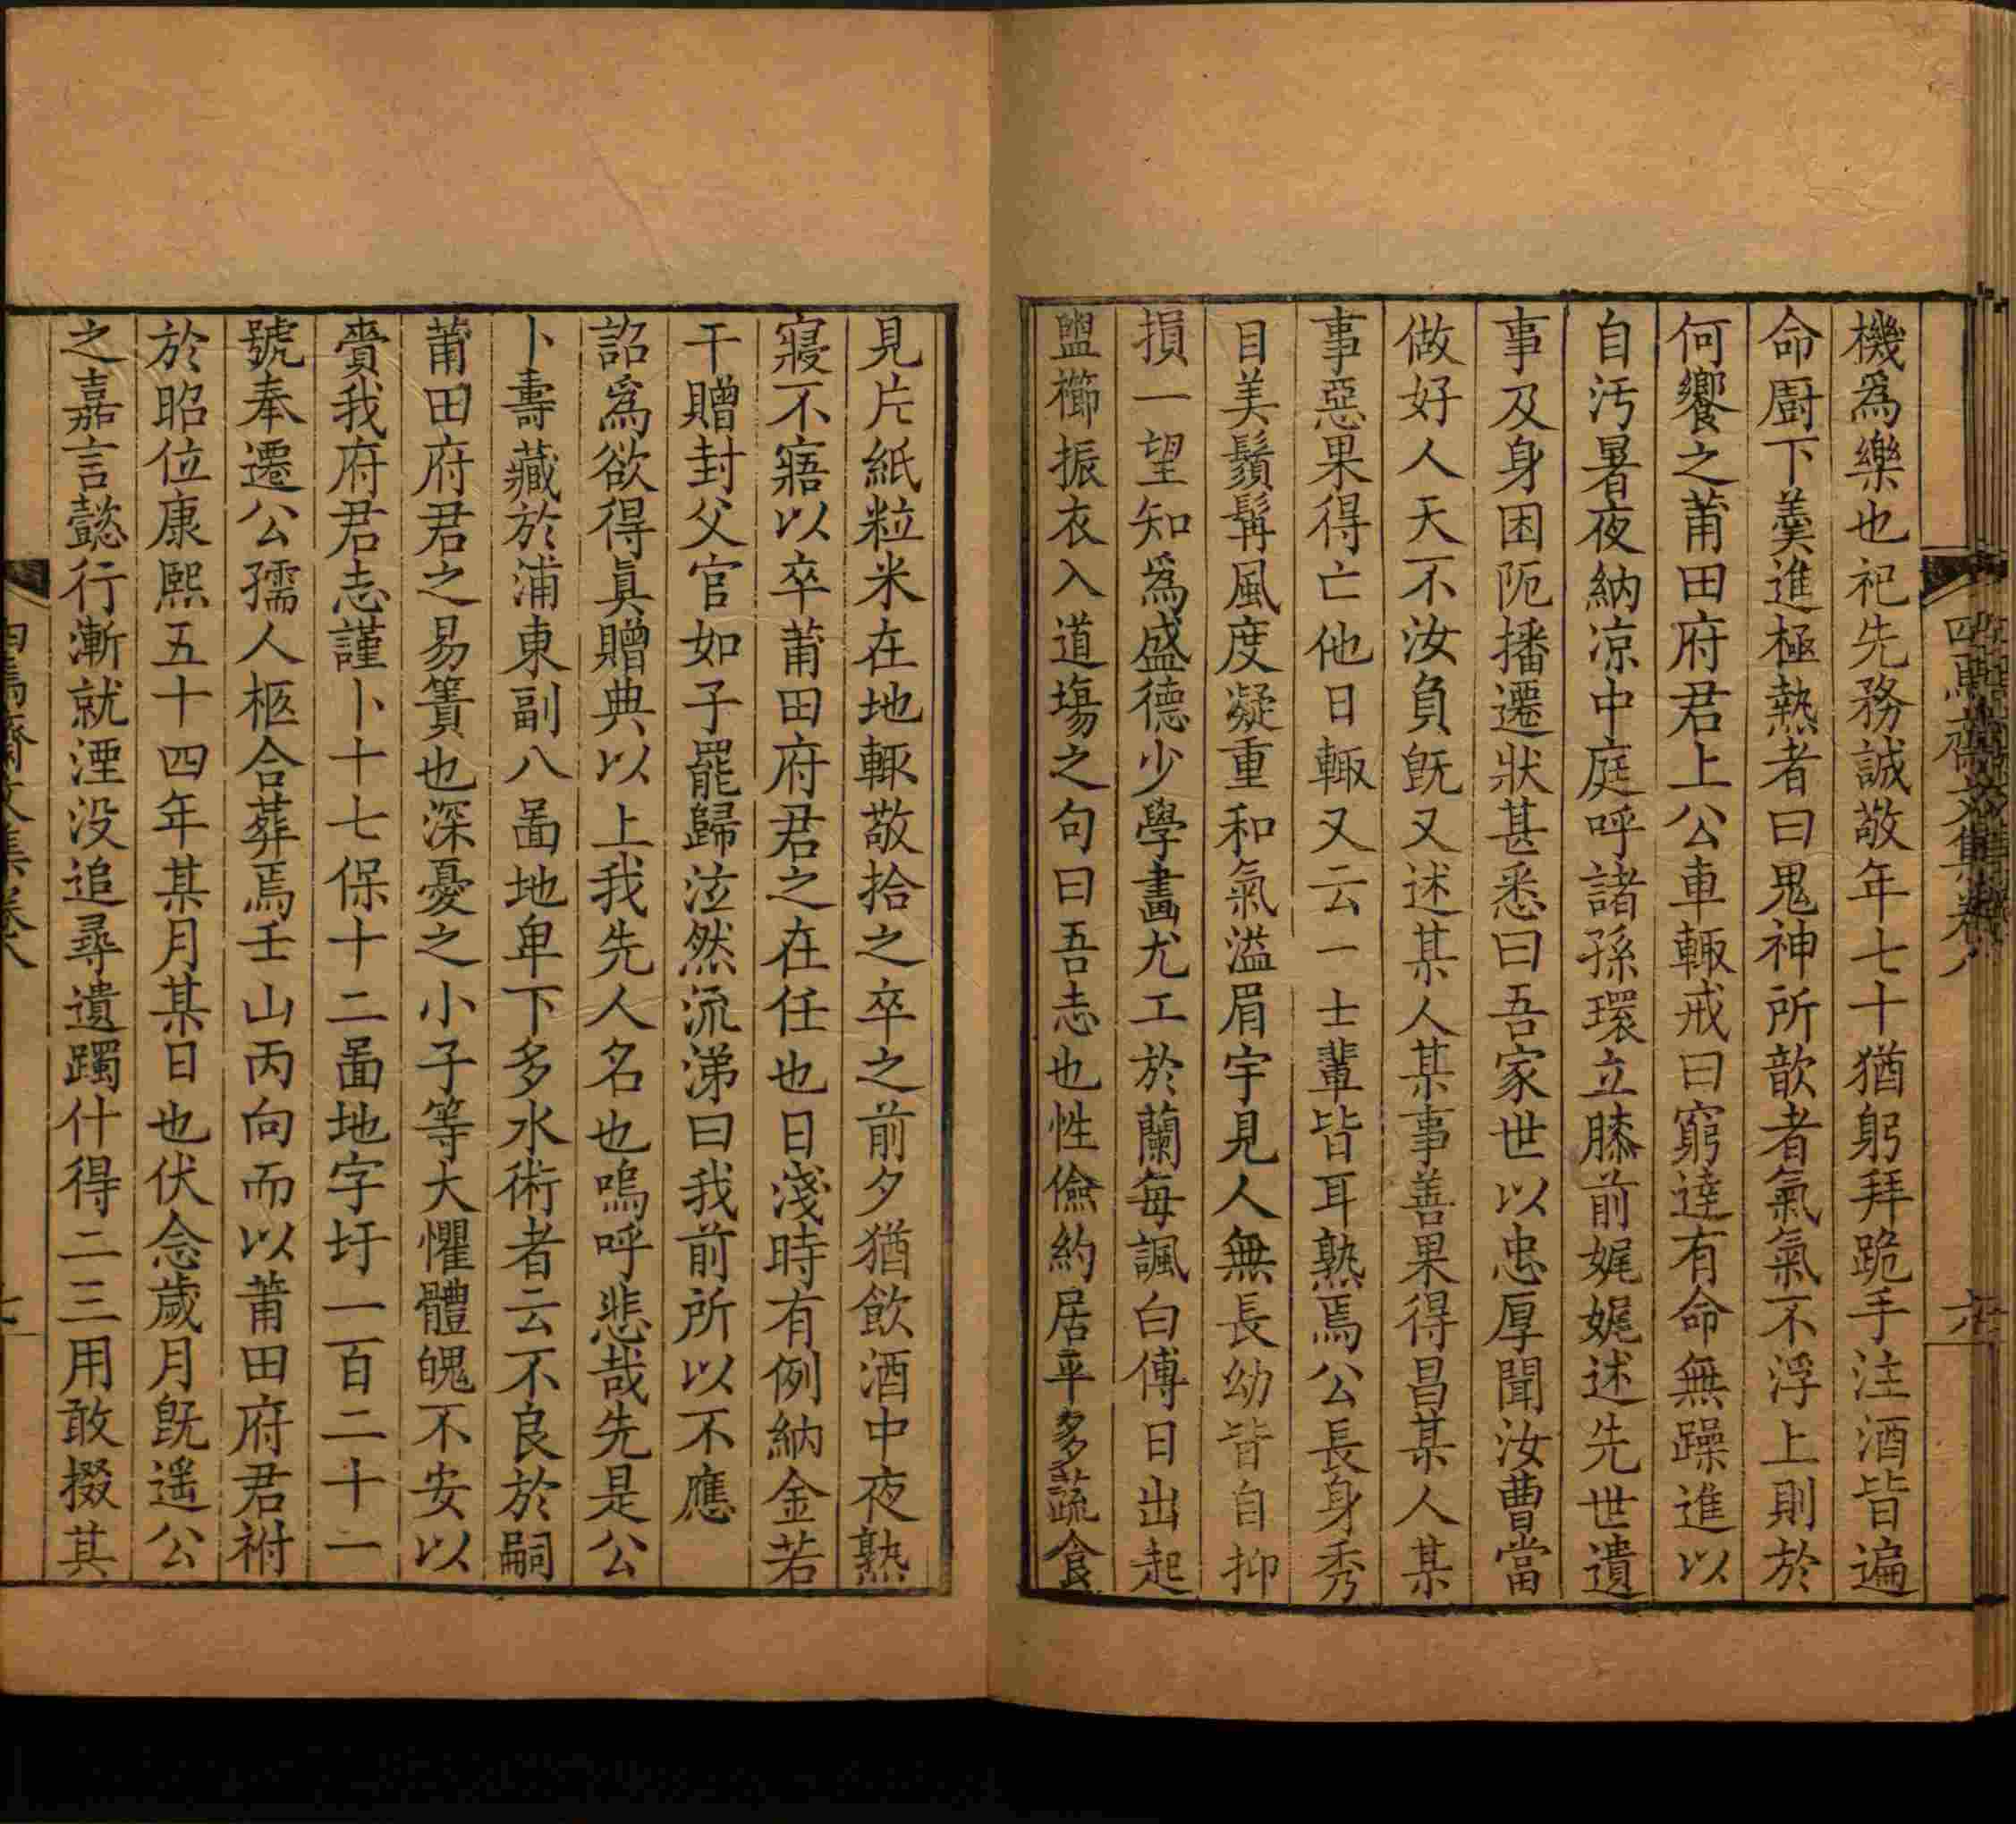 四焉齋文集卷八
六
機爲樂也祀先務誠敬年七十猶躬拜跪手注酒皆遍
命厨下羹進極熱者曰鬼神所歆者氣氣不浮上則於
何饗之莆田府君上公車輙戒曰窮達有命無躁進以
自汚暑夜納凉中庭呼諸孫環立膝前娓娓述先世遺
事及身困阨播遷狀甚悉曰吾家世以忠厚聞汝曹當
做好人天不汝負旣又述某人某事善果得昌某人某
事惡果得亡他日輙又云一士輩皆耳熟焉公長身秀
目美鬚髯風度凝重和氣溢眉宇見人無長幼皆自抑
損一望知爲盛德少學畫尤工於蘭每諷白傅日出起
盥櫛振衣入道塲之句曰吾志也性儉約居平多蔬食
見片紙粒米在地輙敬拾之卒之前夕猶飮酒中夜熟
寢不寤以卒莆田府君之在任也日淺時有例納金若
干贈封父官如子罷歸泣然流涕曰我前所以不應
詔爲欲得眞贈典以上我先人名也嗚呼悲哉先是公
卜壽藏於浦東副八啚地卑下多水術者云不良於嗣
莆田府君之易簀也深憂之小子等大懼體魄不安以
賫我府君志謹卜十七保十二啚地字圩一百二十一
號奉遷公孺人柩合葬焉壬山丙向而以莆田府君祔
於昭位康熙五十四年某月某日也伏念歲月旣遥公
之嘉言懿行漸就湮没追尋遺躅什得二三用敢掇其
四焉齋文集卷八
七